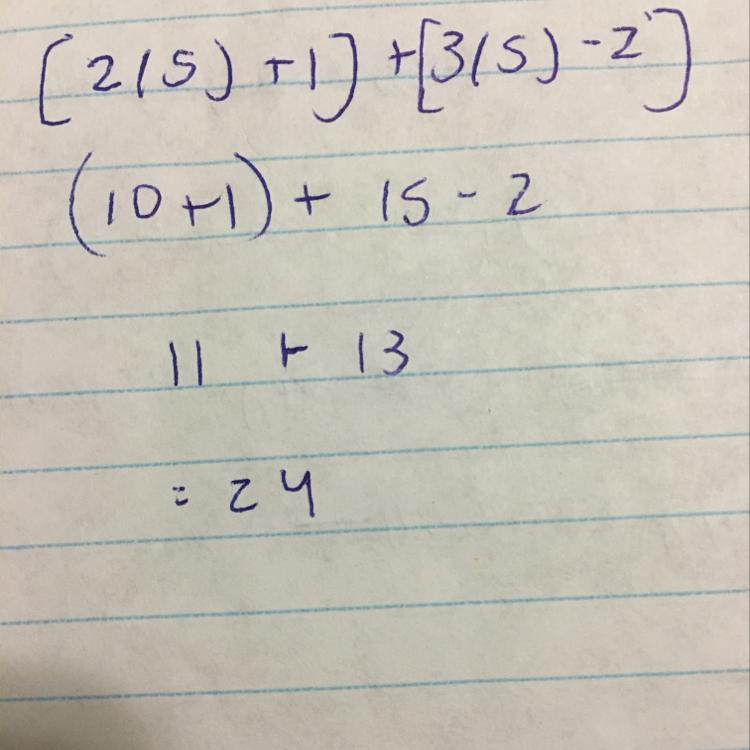 [2(5) +1] +[3(5) -2]
(10+1) + 15 - 2
11 + 13
= 24